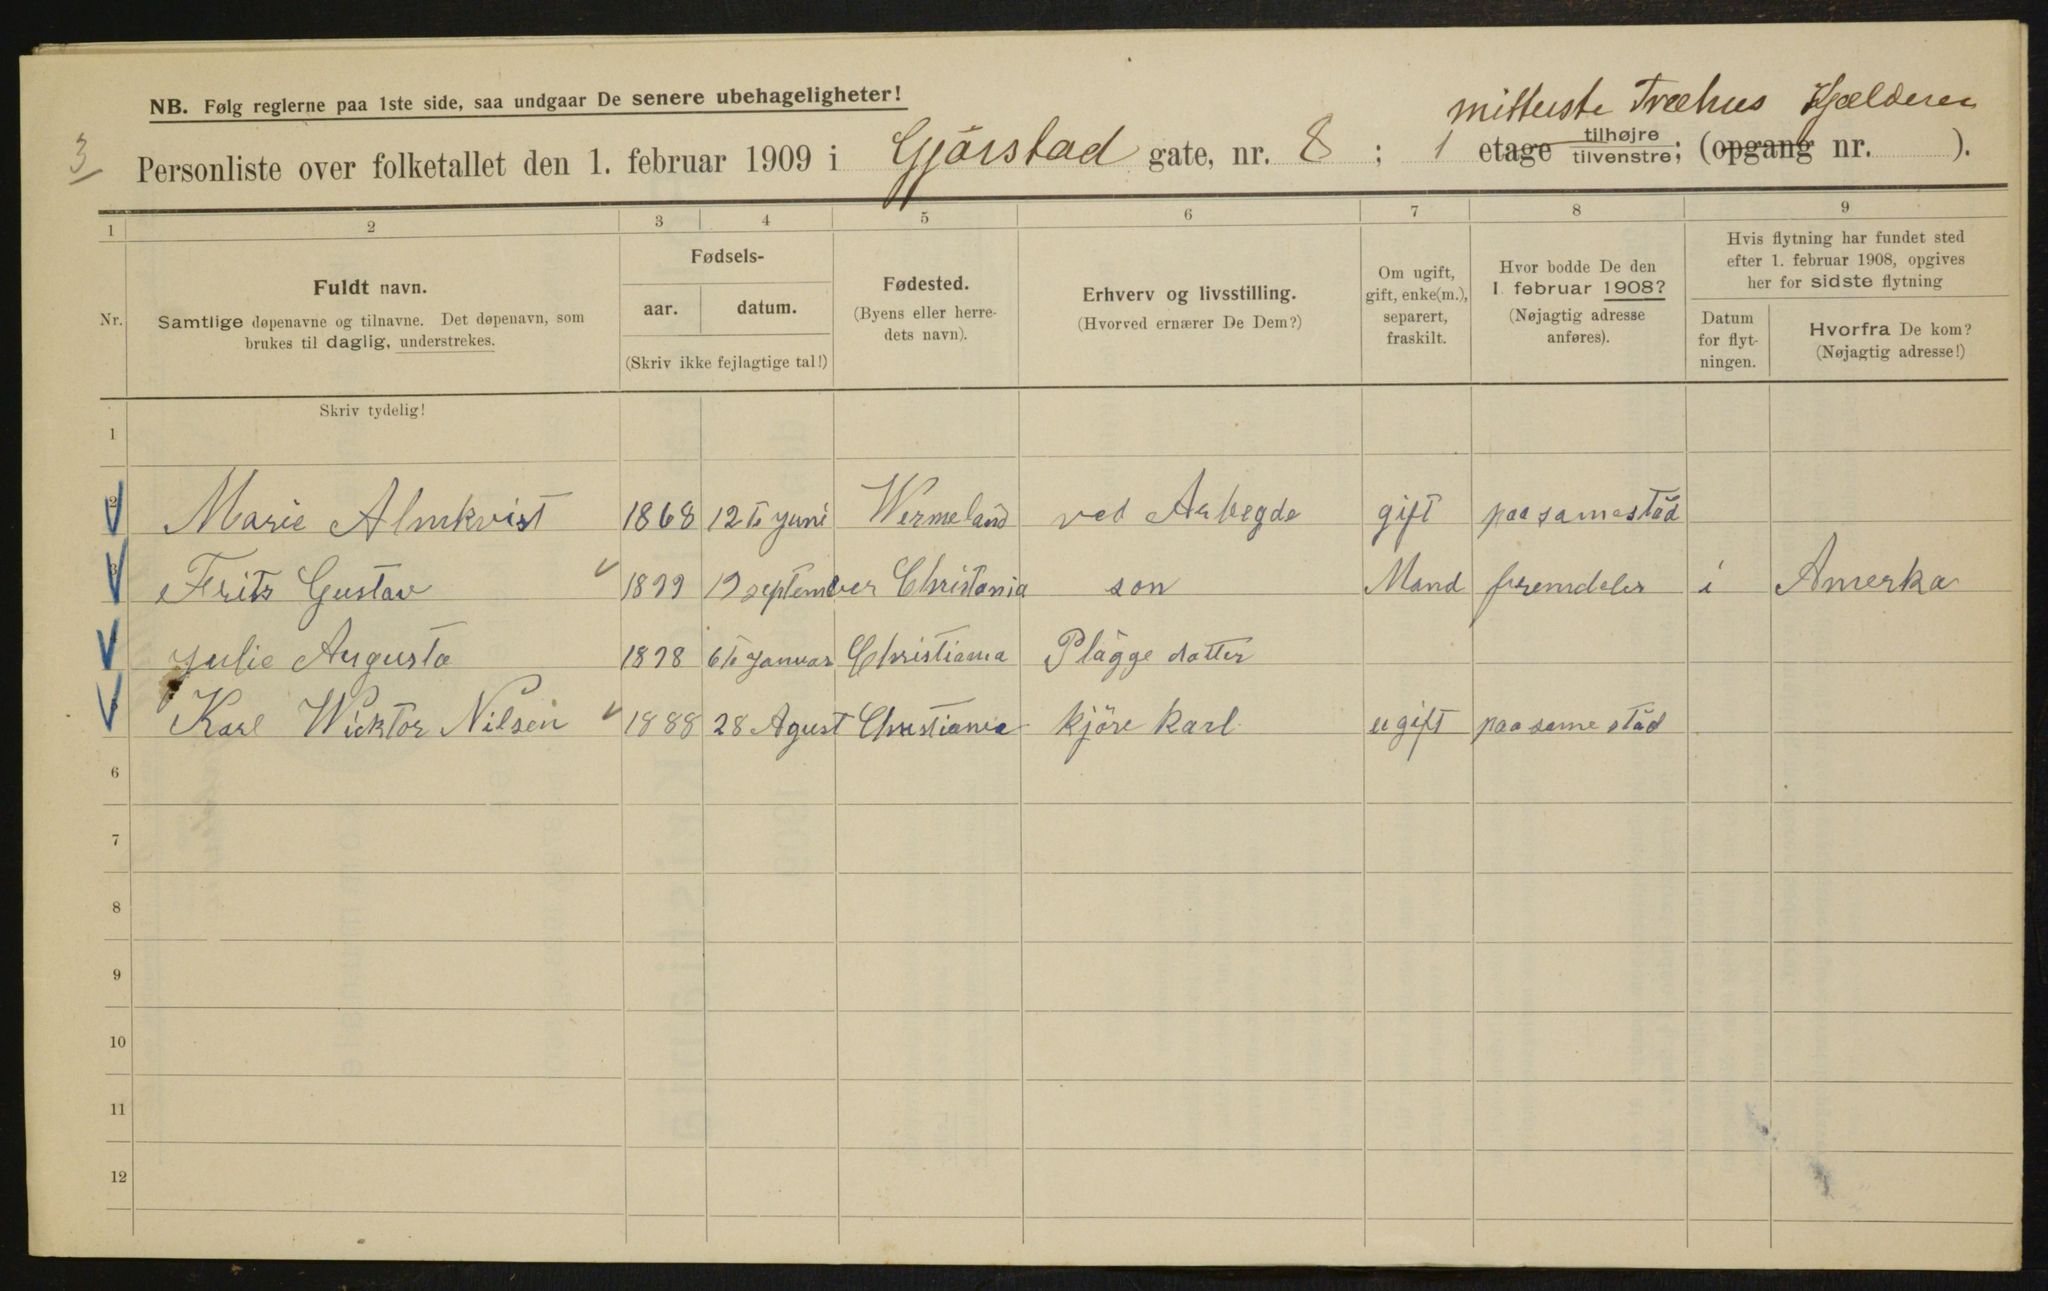 NB. Følg reglerne paa 1ste side, saa undgaar De senere ubehageligheter!
mitterste Træhus Kjælderen
3 Personliste over folketallet den 1. februar 1909 i Gjörstad gate, nr. 8 ; 1 etage tilhøjre tilvenstre; (opgang nr. ).
1 2 3 4 5 6 7 8 9
Nr.
Fuldt navn.
Samtlige døpenavne og tilnavne. Det døpenavn, som
brukes til daglig, understrekes.
Fødsels-
aar. datum.
(Skriv ikke fejlagtige tal!)
Fødested.
(Byens eller herre-
dets navn).
Erhverv og livsstilling.
(Hvorved ernærer De Dem?)
Om ugift,
gift, enke(m.),
separert,
fraskilt.
Hvor bodde De den
1 februar 1908?
(Nøjagtig adresse
anføres).
Hvis flytning har fundet sted
efter 1. februar 1908, opgives
her for sidste flytning
Datum
for flyt-
ningen.
Hvorfra De kom?
(Nøjagtig adresse!)
Skriv tydelig!
1
2 Marie Almkvist 1868 12te Juni Wermeland ved Arbegde gift paa samestäd
3 Fritz Gustav 1899 19 september Christania son Mand fremdeles i Amerka
Julie Augusta 1898 6te Januar Christiania Plägge datter
Karl Wicktor Nilsen 1888 28 Agust Christiania kjöre karl ugift paa same städ
6
7
8
9
10
11
12